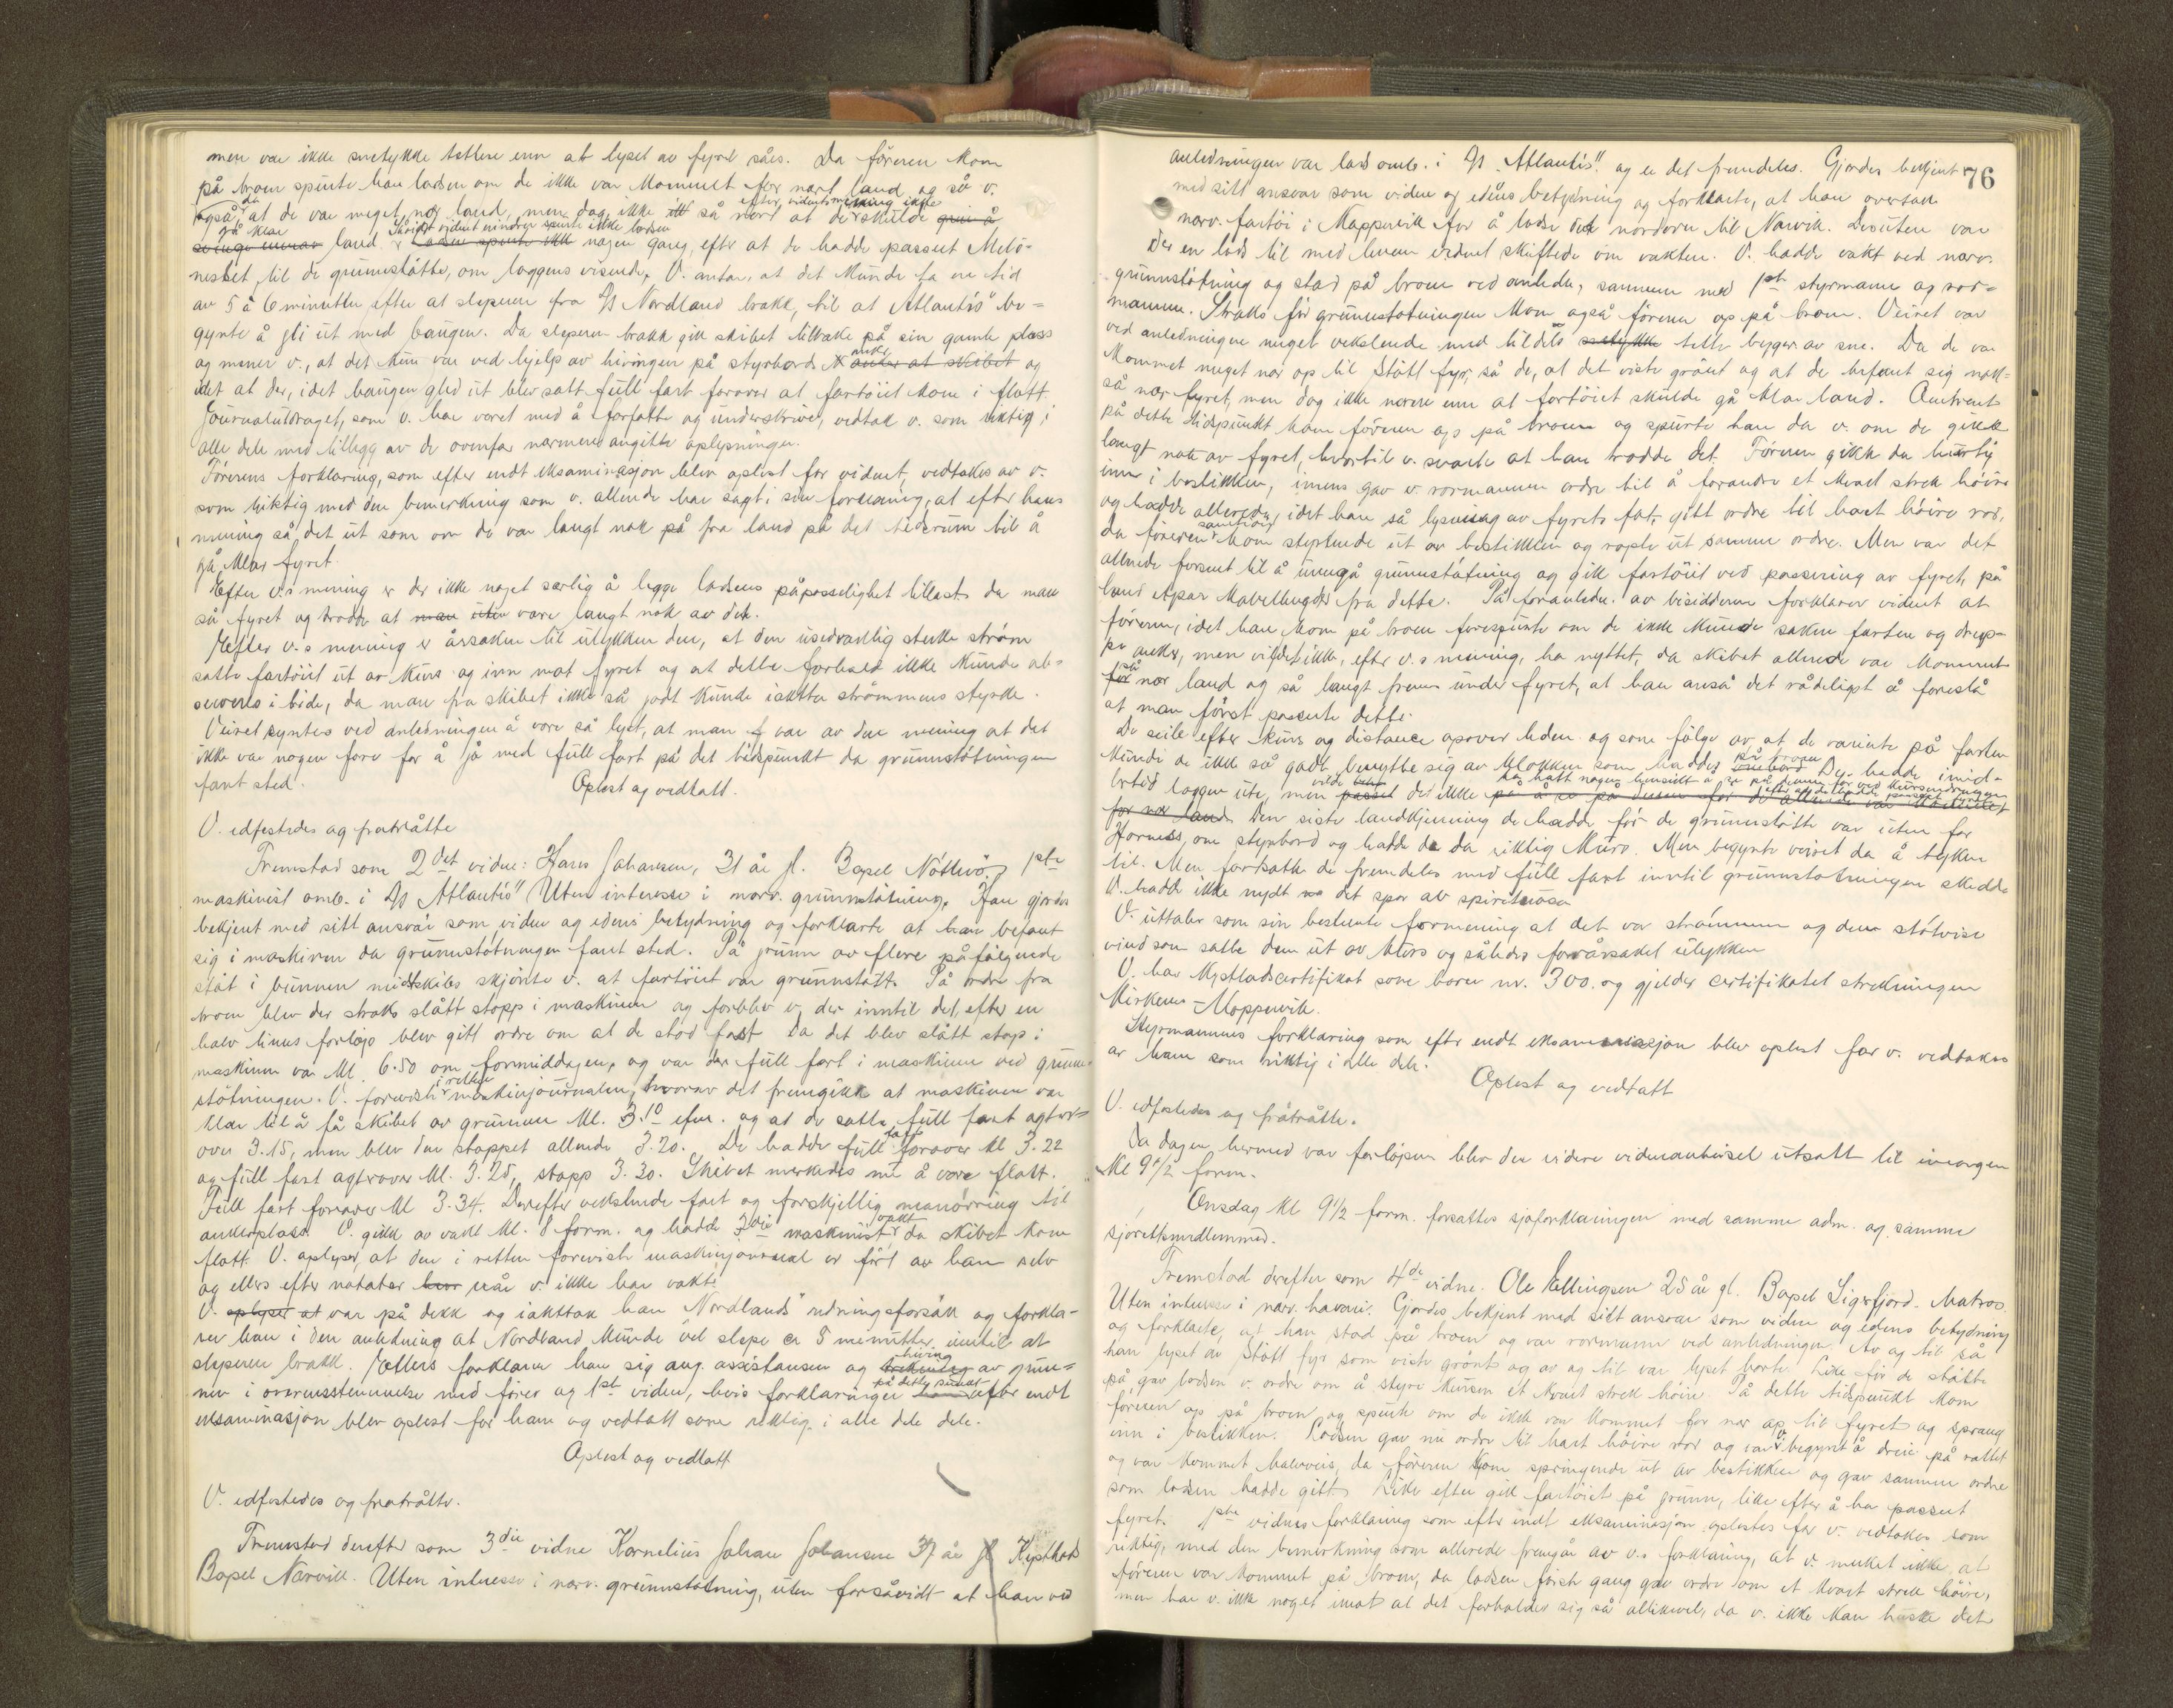 men var ikke snetykke tettere enn at lyset av fyret såes. Da föreren kom
på broen spurte han losen om de ikke var kommet for nært land, og så v.
også da at de var meget nær land, men dog ikke så nært at de efter vidnets mening ikke skulde
gå klar land. Såvidt vidnet erindrer spurte ikke losen nogen gang, efter at de hadde passert Melö-
neset, til de grunnstötte, om loggens visende. V. antar, at det kunde ta en tid
av 5 à 6 minutter efter at sleperen fra D/s Nordland brakk, til at "Atlantis" be-
gynte å gli ut med baugen. Da sleperen brakk gikk skibet tilbake på sin gamle plass
og mener v., at det kun var ved hjelp av hivingen på styrbords anker og
idet at der, idet baugen gled ut blev satt full fart forover at fartöiet kom i flott.
Journalutdraget, som v. har været med å forfatte og underskrive, vedtok v. som riktig i
alle dele med tillegg av de ovenfor nærmere angitte oplysninger.
Förerens forklaring, som efter endt eksaminasjon blev oplest for vidnet, vedtokes av v.
som riktig med den bemerkning som v. allerede har sagt i sin forklaring, at efter hans
mening så det ut som om de var langt nok på fra land på det tidsrum til å
gå klar fyret.
Efter v.s mening er der ikke noget særlig å legge losens påpasselighet tillast da man
så fyret og trodde at være langt nok av det.
Efter v.s mening er årsaken til ulykken den, at den usedvanlig sterke ström
satte fartöiet ut av kurs og inn mot fyret og at dette forhold ikke kunde ob-
serveres i tide, da man fra skibet ikke så godt kunde iaktta strömmens styrke.
Veiret syntes ved anledningen å være så lyst, at man var av den mening at det
ikke var nogen fare for å gå med full fart på det tidspunkt da grunnstötningen
fant sted.
Oplest og vedtatt.
V. edfestedes og fratrådte
Fremstod som 2det vidne: Hans Johansen, 31 år gl. Bopel Nötterö. 1ste
maskinist omb. i D/s "Atlantis" Uten interesse i nærv. grunnstötning. Han gjordes
bekjent med sitt ansvar som vidne og edens betydning og forklarte at han befant
sig i maskinen da grunnstötningen fant sted. På grunn av flere påfölgende
stöt i bunnen midtskibs skjönte v. at fartöiet var grunnstött. På ordre fra
broen blev der straks slått stopp i maskinen og forblev v. der inntil det, efter en
halv times forlöp blev gitt ordre om at de stod fast da det blev slått stop i
maskinen var kl. 6.50 om formiddagen, og var der full fart i maskinen ved grunn-
stötningen. V. foreviste i retten maskinjournalen, hvorav det fremgikk at maskinen var
klar til å få skibet av grunnen kl. 3.10 efm. og at de satte full fart agter-
over 3.15, men blev den stoppet allerede 3.20. De hadde full fart forover kl 3.22
og full fart agterover kl. 3.25, stopp 3.30. Skibet merkedes nu å være flott.
Full fart forover kl 3.34. Derefter vekslende fart og forskjellig manövring til
ankerplass. V. gikk av vakt kl. 8 form. og hadde 3die maskinist vakt da skibet kom
flott. V. oplyser, at den i retten foreviste maskinjournal er fört av han selv
og ellers efter notater når v. ikke har vakt.
V. var på dekk og iakttok han "Nordlands" redningsforsök og forkla-
rer han i den anledning at Nordland kunde vel slepe ca 5 minutter inntil at
sleperen brakk. Ellers forklarer han sig ang. assistansen og hiving av grun-
nen i overensstemmelse med förer og 1ste vidne, hvis forklaringer på dette punkt efter endt
eksaminasjon blev oplest for ham og vedtatt som riktig i alle dele dele.
Oplest og vedtatt
V. edfestedes og fratrådte.
Fremstod derefter som 3die vidne Kornelius Johan Johansen 37 år gl Kystlods
Bopel Narvik. Uten interesse i nærv. grunnstötning, uten forsåvidt at han ved
76
anledningen var lods omb. i D/s "Atlantis" og er det fremdeles. Gjordes bekjent
med sitt ansvar som vidne og edens betydning og forklarte, at han overtok
nærv. fartöi i Kopperrvik for å lodse det nordover til Narvik. Desuten var
der en lods til med hvem vidnet skiftede om vakten. V. hadde vakt ved nærv.
grunnstötning og stod på broen ved anledn. sammen med 1ste styrmann og ror-
mannen. Straks för grunnstötningen kom også föreren op på broen. Veiret var
ved anledningen meget vekslende med tildels tette byger av sne. Da de var
kommet meget nær op til Stött fyr, så de, at det viste grönt og at de befant sig nok-
så nær fyret, men dog ikke nærmere enn at fartöiet skulde gå klar land. Omtrent
på dette tidspunkt kom föreren op på broen og spurte han da v. om de gikk
langt nok av fyret, hvortil v. svarte at han trodde det. Föreren gikk da hurtig
inn i bestikken, imens gav v. rormannen ordre til å forandre et kvart strek höire
og hadde allerede, idet han så lysning av fyrets fot, gitt ordre til hart höire ror,
da föreren samtidig kom styrtende ut av bestikken og ropte ut samme ordre. Men var det
allerede forsent til å unngå grunnstötning og gikk fartöiet ved passering av fyret, på
land et par kabellengder fra dette. På foranledn. av bisidderne forklarer vidnet at
föreren, idet han kom på broen forespurte om de ikke kunde sakne farten og drop-
pe anker, men vilde det ikke, efter v.s mening, ha nyttet, da skibet allerede var kommet
så nær land og så langt frem under fyret, at han anså det rådeligst å foreslå
at man först passerte dette.
De seilte efter kurs og distance opover leden og som fölge av, at de varierte på farten
kunde de ikke så godt benytte sig av klokken som haddes på broen. De hadde imid-
lertid loggen ute, men vilde det ikke ha hatt nogen hensikt å se på denne för ved kursendringen
Den siste landkjenning de hadde för de grunnstötte var uten for
Hornes, om styrbord og hadde de da riktig kurs. Men begynte veiret da å tykne
til. Men fortsatte de fremdeles med full fart inntil grunnstötningen skedde
V. hadde ikke nydt det spor av spirituosa
V. uttaler som sin bestemte formening at det var strömmen og den stötvise
vind som satte dem ut av kurs og således forårsaket ulykken
V. har kystlodscertifikat som bærer nr. 300. og gjelder certifikatet strekningen
Kirkenes – Kopperrvik.
Styrmannens forklaring som efter endt eksaminasjon blev oplest for v. vedtokes
av ham som riktig i alle dele.
Oplest og vedtatt
V. edfestedes og fratrådte.
Da dagen hermed var forlöpen blev den videre vidneavhörsel utsatt til imorgen
kl 9 1/2 form.
Onsdag kl 9 1/2 form. forsattes sjöforklaringen med samme adm. og samme
sjörettsmedlemmer.
Fremstod derefter som 4de vidne. Ole Ellingsen 25 år gl. Bopel Sigerfjord. Matros.
Uten interesse i nærv. havari. Gjordes bekjent med sitt ansvar som vidne og edens betydning
og forklarte, at han stod på broen og var rormann ved anledningen. Av og til så
han lyset av Stött fyr som viste grönt og av og til var lyset borte. Like för de stötte
på gav lodsen v. ordre om å styre kursen et kvart strek höire. På dette tidspunkt kom
föreren op på broen og spurte om de ikke var kommet for nær op til fyret og sprang
inn i bestikken. Lodsen gav nu ordre til hart höire ror og var v. begynt å dreie på rattet
og var kommet halvveis, da föreren kom springende ut av bestikken og gav samme ordre
som lodsen hadde gitt. Like efter gikk fartöiet på grunn, like efter å ha passert
fyret. 1ste vidnes forklaring som efter endt eksaminasjon oplestes for v. vedtokes som
riktig, med den bemerkning som allerede fremgår av v.s forklaring, at v. merket ikke at
föreren var kommet på broen, da lodsen förste gang gav ordre om et kvart strek höire,
men har v. ikke noget imot at det forholder sig så allikevel, da v. ikke kan huske det